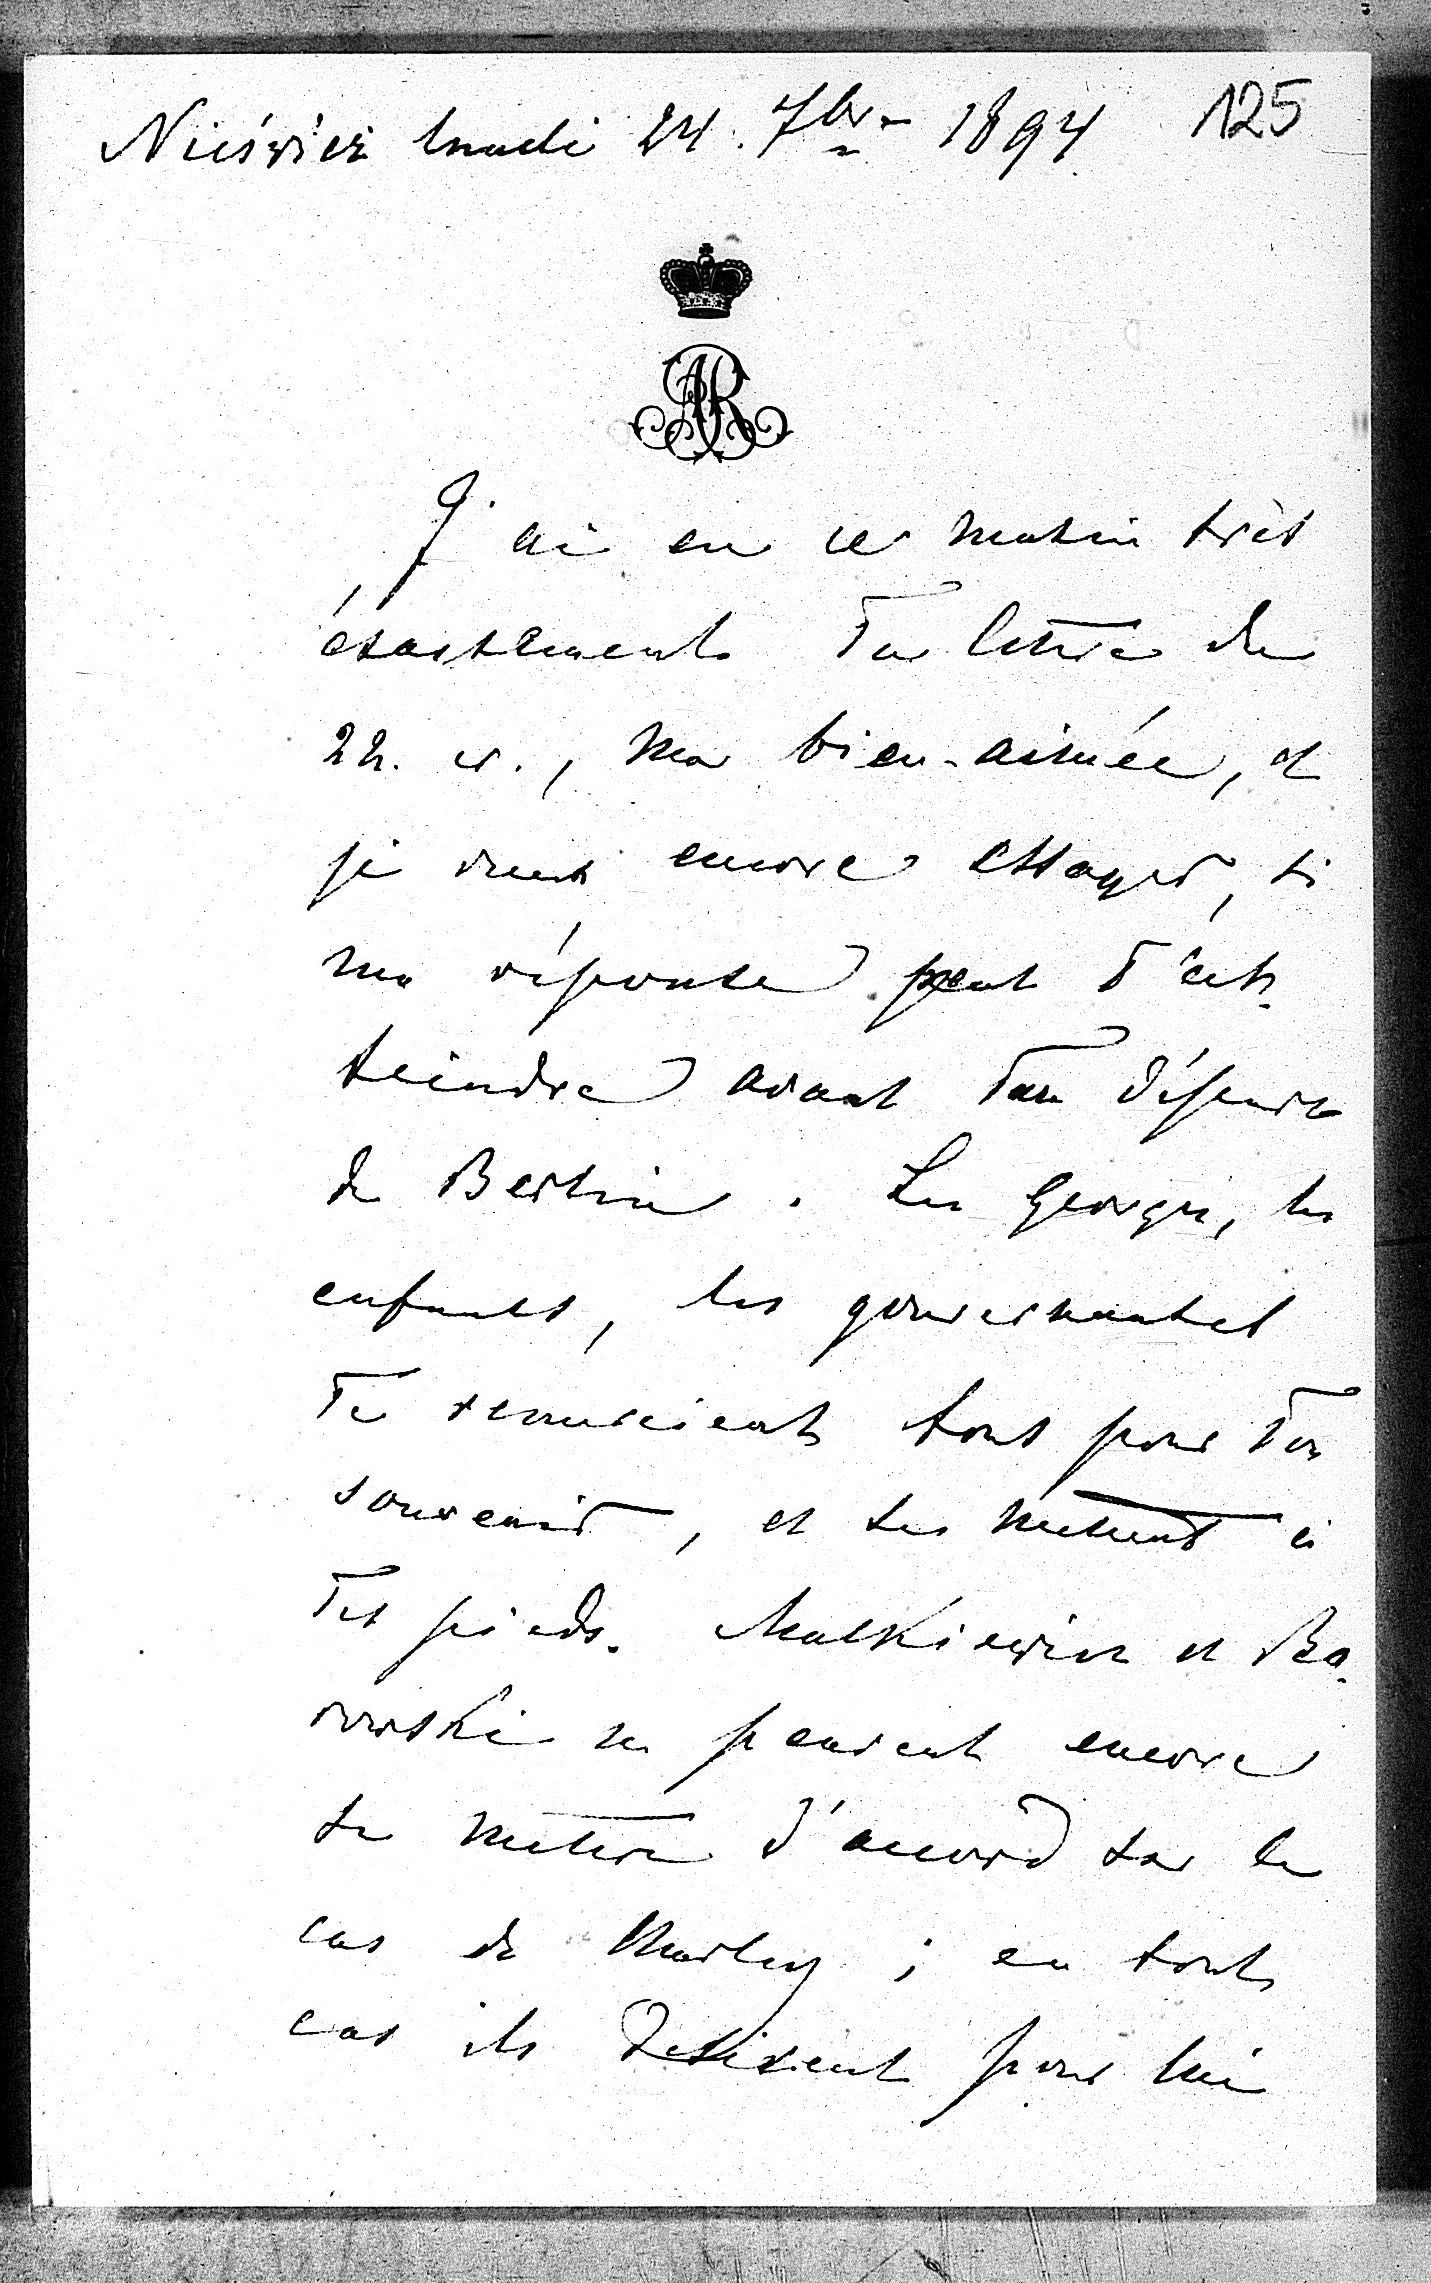 Nieśwież lundi 24. 7bre 1894 125
AR
J'ai eu ce matin très
éxactement Ta lettre du
22. cr., ma bien-aimée, et
je veux encore essayer, si
ma réponse peut T'at-
teindre avant Ton départ
de Berlin. Les Georges, les
enfants, les gouvernantes
Te remercient tous pour Ton
souvenir, et se mettent à
Tes pieds. Malkiewicz et Bo-
rowski ne peuvent encore
se mettre d'accord sur le
cas de Marley ; en touts
cas ils désirent pour lui